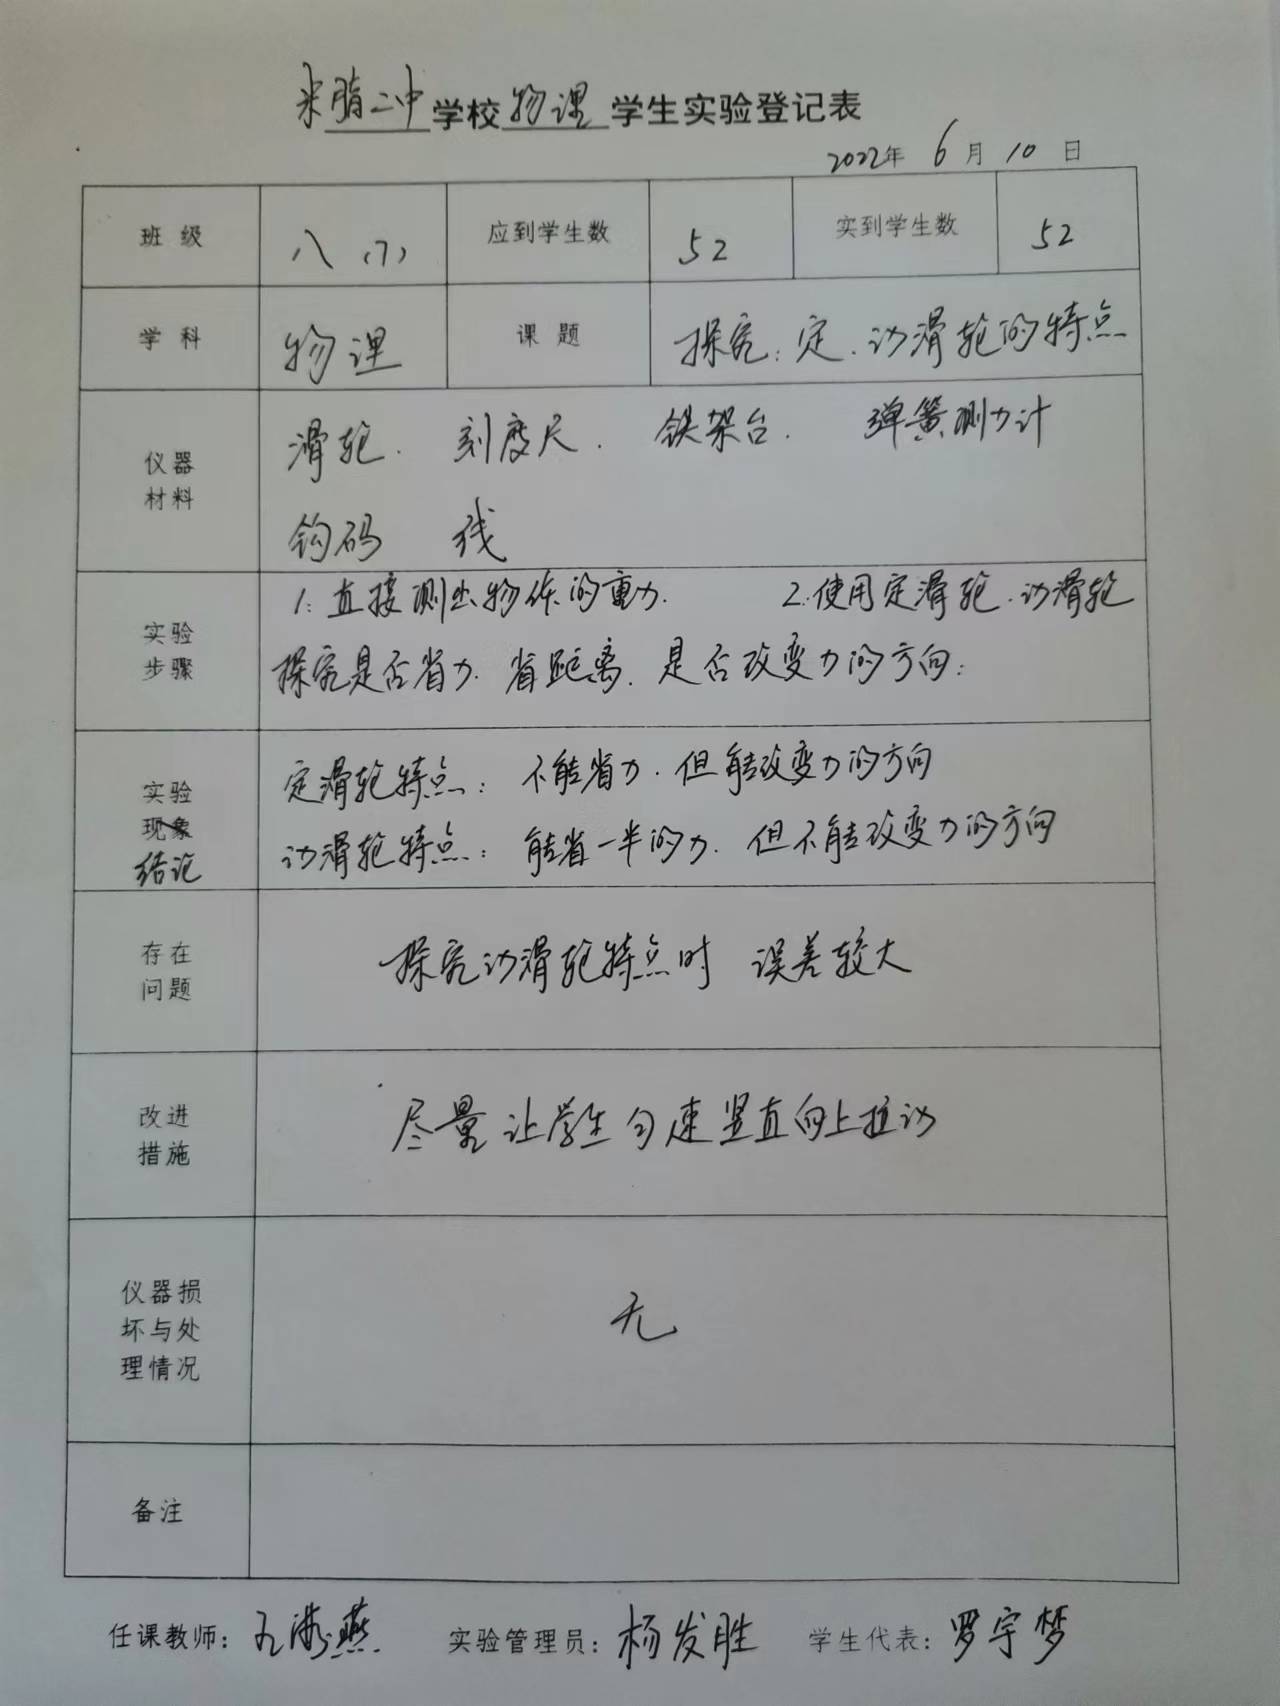 米脂二中学校物理学生实验登记表
2022年 6月 10日
班级 八(7) 应到学生数 52 实到学生数 52
学科 物理 课题 探究:定、动滑轮的特点
仪器材料
滑轮. 刻度尺. 铁架台. 弹簧测力计
钩码 线
实验步骤
1. 直接测出物体的重力. 2.使用定滑轮.动滑轮
探究是否省力.省距离.是否改变力的方向.
实验
结论
定滑轮特点: 不能省力.但能改变力的方向
动滑轮特点: 能省一半的力.但不能改变力的方向
存在问题
探究动滑轮特点时 误差较大
改进措施
尽量让学生匀速竖直向上拉动
仪器损坏与处理情况
无
备注
任课教师: 海燕 实验管理员: 杨发胜 学生代表: 罗宇梦